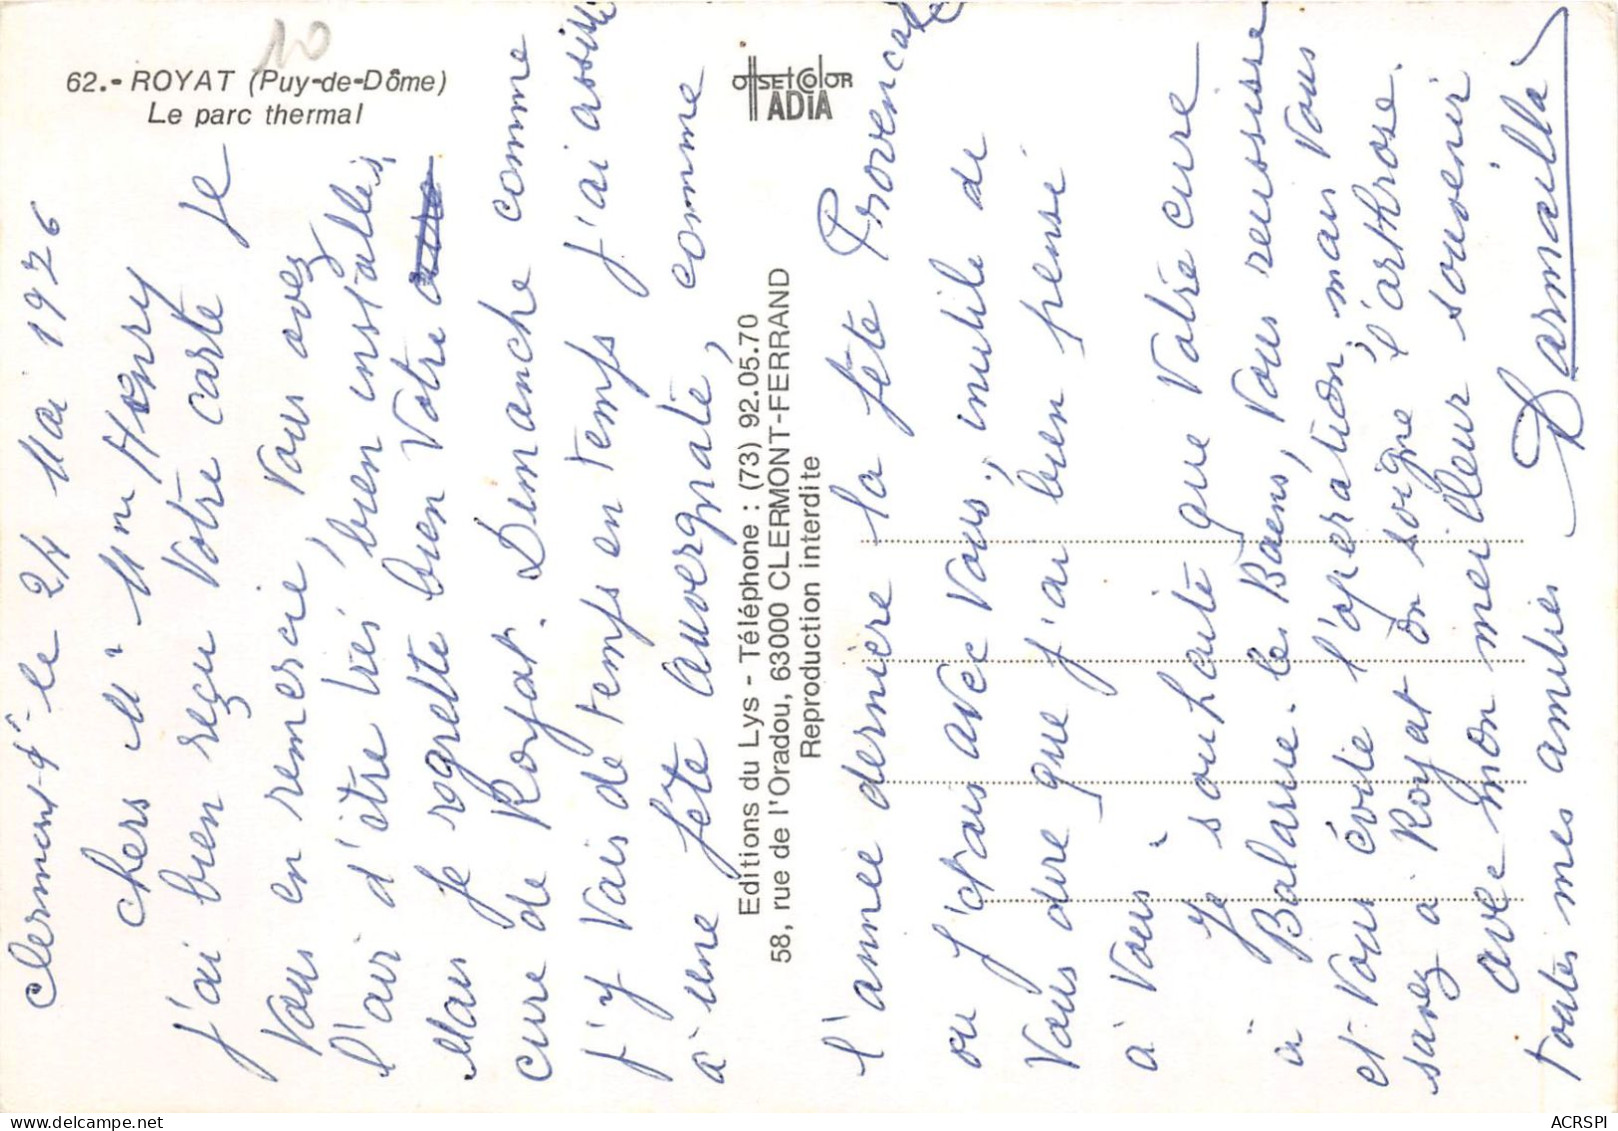 62.- ROYAT (Puy-de-Dôme)
Le parc thermal
10
OFFSET COLOR
ADIA
Editions du Lys - Téléphone : (73) 92.05.70
58, rue de l'Oradou, 63000 CLERMONT-FERRAND
Reproduction interdite
Clermont-Fd le 24 Mai 1976
Chers Mr Mme Henry
J'ai bien reçu Votre carte je
Vous en remercie, Vous avez
l'air d'être très bien installés,
Mais je regrette bien Votre
cure de Royat. Dimanche comme
j'y Vais de temps en temps j'ai assisté
à une fête auvergnate, comme
l'année dernière la fête Provençale
ou j'étais avec Vous, inutile de
Vous dire que j'ai bien pensé
à Vous
Je souhaite que Votre cure
à Balaruc-les Baens, Vous reussisse
et Vous évite l'opération, mais Vous
savez à Royat on soigne l'arthrose.
avec mon meilleur souvenir
toutes mes amitiés Darmaillà
ACRSPI